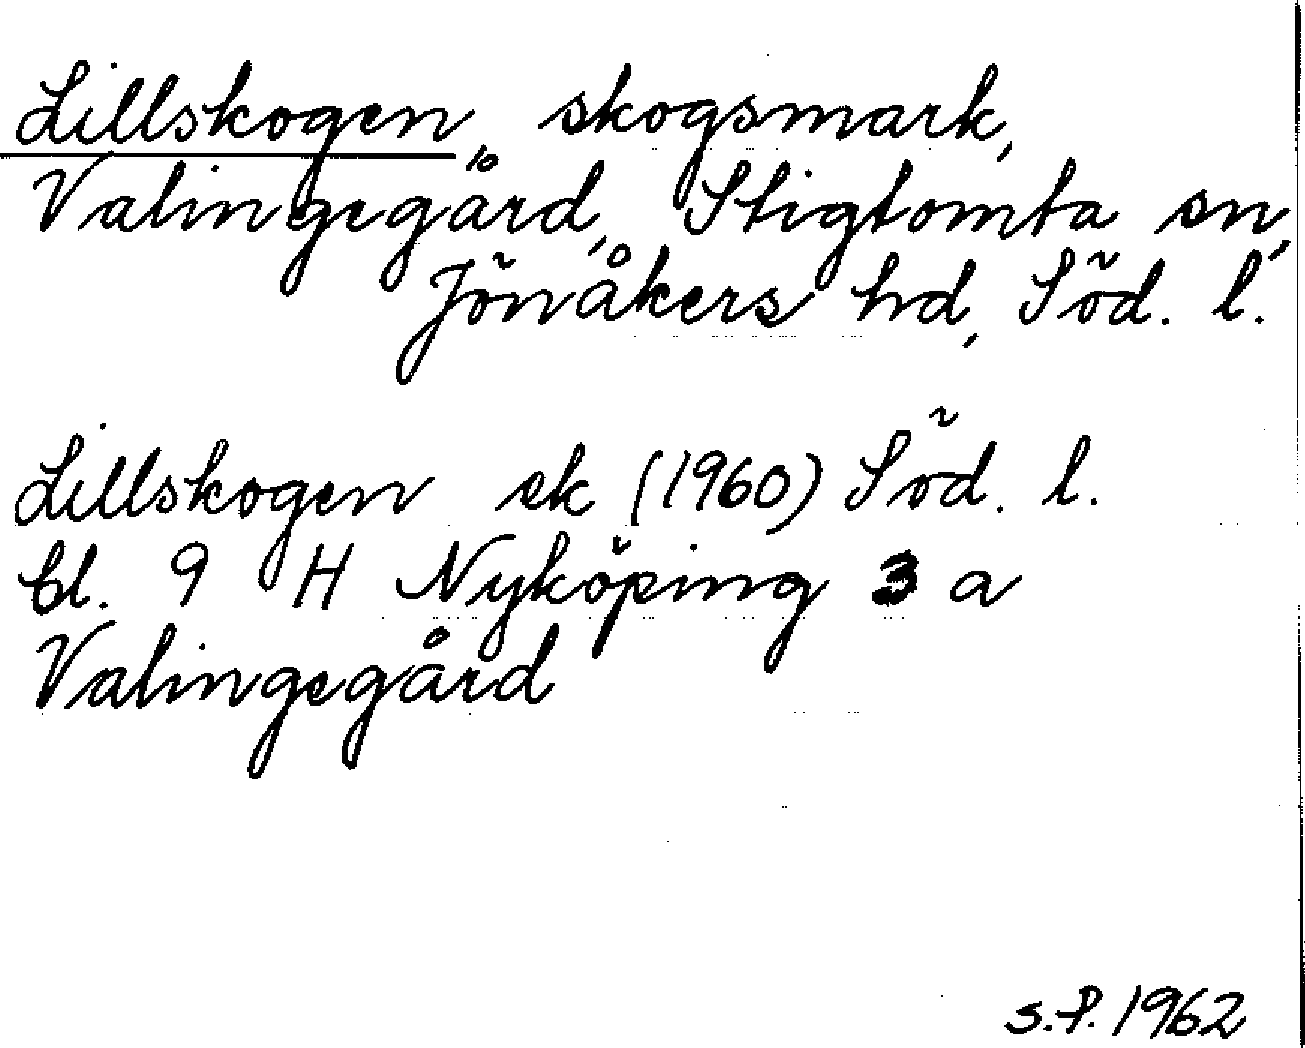 Lillskogen, skogsmark,
Valingegård, Stigtomta sn,
Jönåkers hd, Söd. l.
Lillskogen ek (1960) Söd. l.
bl. 9 H Nyköping 3 a
Valingegård
S.P. 1962